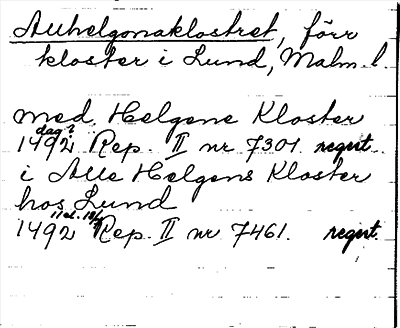 Allhelgonaklostret, förr
kloster i Lund, Malm. l.
med Helgene Kloster
dag?
1492 Rep. II nr 7301. regist.
i Alle Helgens Kloster
hos Lund
11 el. 18/
1492 Rep. II nr 7461. regist.